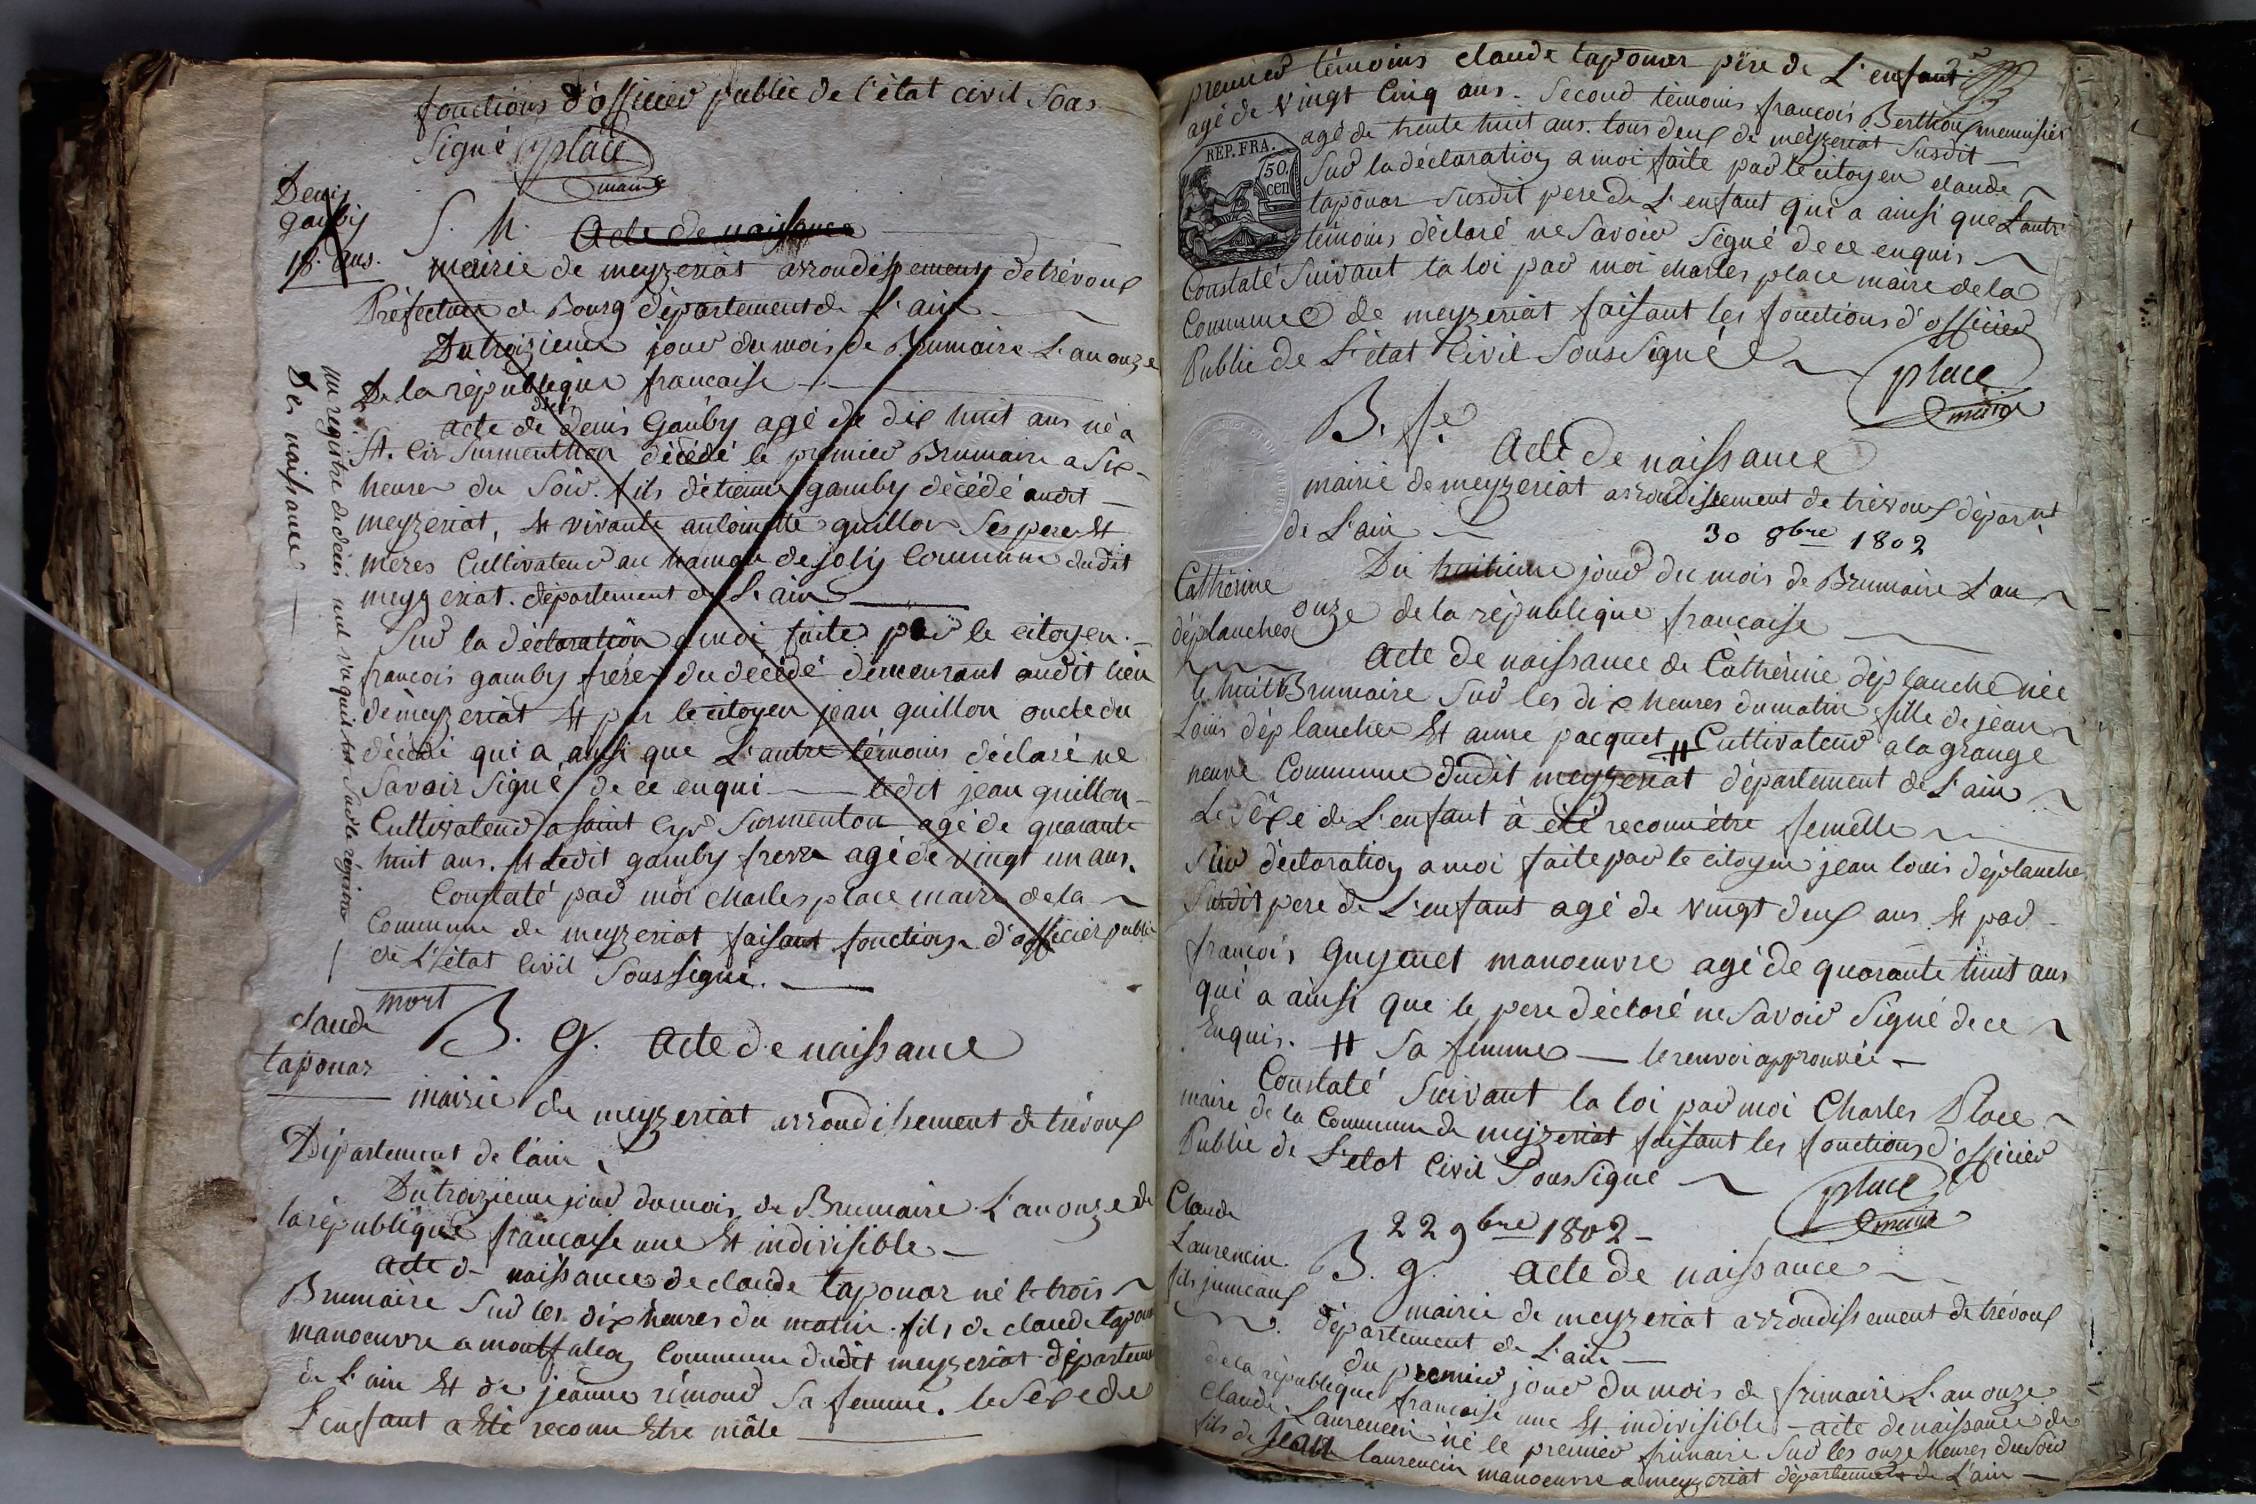 fonctions d'officier public de l'état civil sous
signé place
maire
Denis
gauby
18. ans.
S. N. Acte de naissance
mairie de meyzeriat arrondissement de trévoux
Préfecture de Bourg département de L'ain
Du troizieme jour du mois de Brumaire L'an onze
De la république francaise
acte de décé denis Gauby agé de dix huit ans né a
St. Cir Surmenthon décédé le premier Brumaire a Six
heures du Soir. fils détienne gauby décédé audit
meyzeriat, et vivante antoinette guillon Ses pere et
meres Cultivateur au hamau de joly Commune dudit
meyzeriat. département de L'ain
Sur la déclaration a moi faite par le citoyen
francois gauby frére du décédé demeurant audit lieu
de meyzeriat et par le citoyen jean guillon oncle du
décédé qui a ainsi que L'autre témoins déclaré ne
Savoir Signé de ce enqui ledit jean guillon
Cultivateur a saint Cyr Surmenton agé de quarante
huit ans. et ledit gauby frere agé de vingt un ans.
Constaté par moi charles place maire de la
Commune de meyzeriat faisant fonctions d'officier public
de L'état Civil Soussigné.
De naissance
mort
claude
taponar
B. G. Acte de naissance
mairie de meyzeriat arrondissement de trévoux
Département de l'ain
Du troizieme jour du mois de Brumaire L'an onze de
la république francaise une et indivisible
acte de naissance de claude taponar né le trois
Brumaire Sur les dix heures du matin. fils de claude tapon
manoeuvre a montfalcon Commune dudit meyzeriat départem
de L'ain et de jeanne rémond Sa femme. le Sexe de
L'enfant a été reconu Etre mâle
premier témoins claude taponar pére de L'enfant
agé de vingt Cinq ans. Second témoins francois Berthoux menuisier
agé de trente huit ans. tous deux de meyzeriat susdit
REP. FRA.
50.
cen
Sur la déclaration a moi faite par le citoyen claude
taponar susdit pere de L'enfant qui a ainsi que L'autre
témoins déclaré ne Savoir Signé de ce enquis
Constaté Suivant la loi par moi charles place maire de la
Commune de meyzeriat faisant les fonctions d'officier
Public de L'état Civil Soussigné
place
maire
B. fe
Acte de naissance
mairie de meyzeriat arrondissement de trévoux départnt
de L'ain
30 8bre 1802
Catherine
déplanches
Du huitieme jour du mois de Brumaire L'an
onze de la république francaise
Acte de naissance de Catherine déplanche née
le huit Brumaire Sur les dix heures du matin fille de jean
Louis déplanches et anne pacquet # Cultivateur a la grange
neuve Commune dudit meyzeriat département de L'ain
Le Séxe de L'enfant à été reconu étre femelle
Sur déclaration a moi faite par le citoyen jean louis déplanches
Susdit pere de L'enfant agé de vingt deux ans et par
francois Guyenet manoeuvre agé de quarante huit ans
qui a ainsi que le pere déclaré ne Savoir Signé de ce
Enquis. # Sa femme le renvoi approuvée
Constaté Suivant la loi par moi Charles Place
maire de la Commune de meyzeriat faisant les fonctions d'officier
Public de L'etat Civil Soussigné
place
maire
22 9bre 1802
Claude
Laurencin
fils jumeaux
B. g. Acte de naissance
mairie de meyzeriat arrondissement de trévoux
département de L'ain
du premier jour du mois de frimaire L'an onze
de la république francaise une et indivisible acte de naissance de
Claude Laurencin né le premier frimaire Sur les onze heures du Soir
fils de jean laurencin manoeuvre a meyzeriat département de L'ain